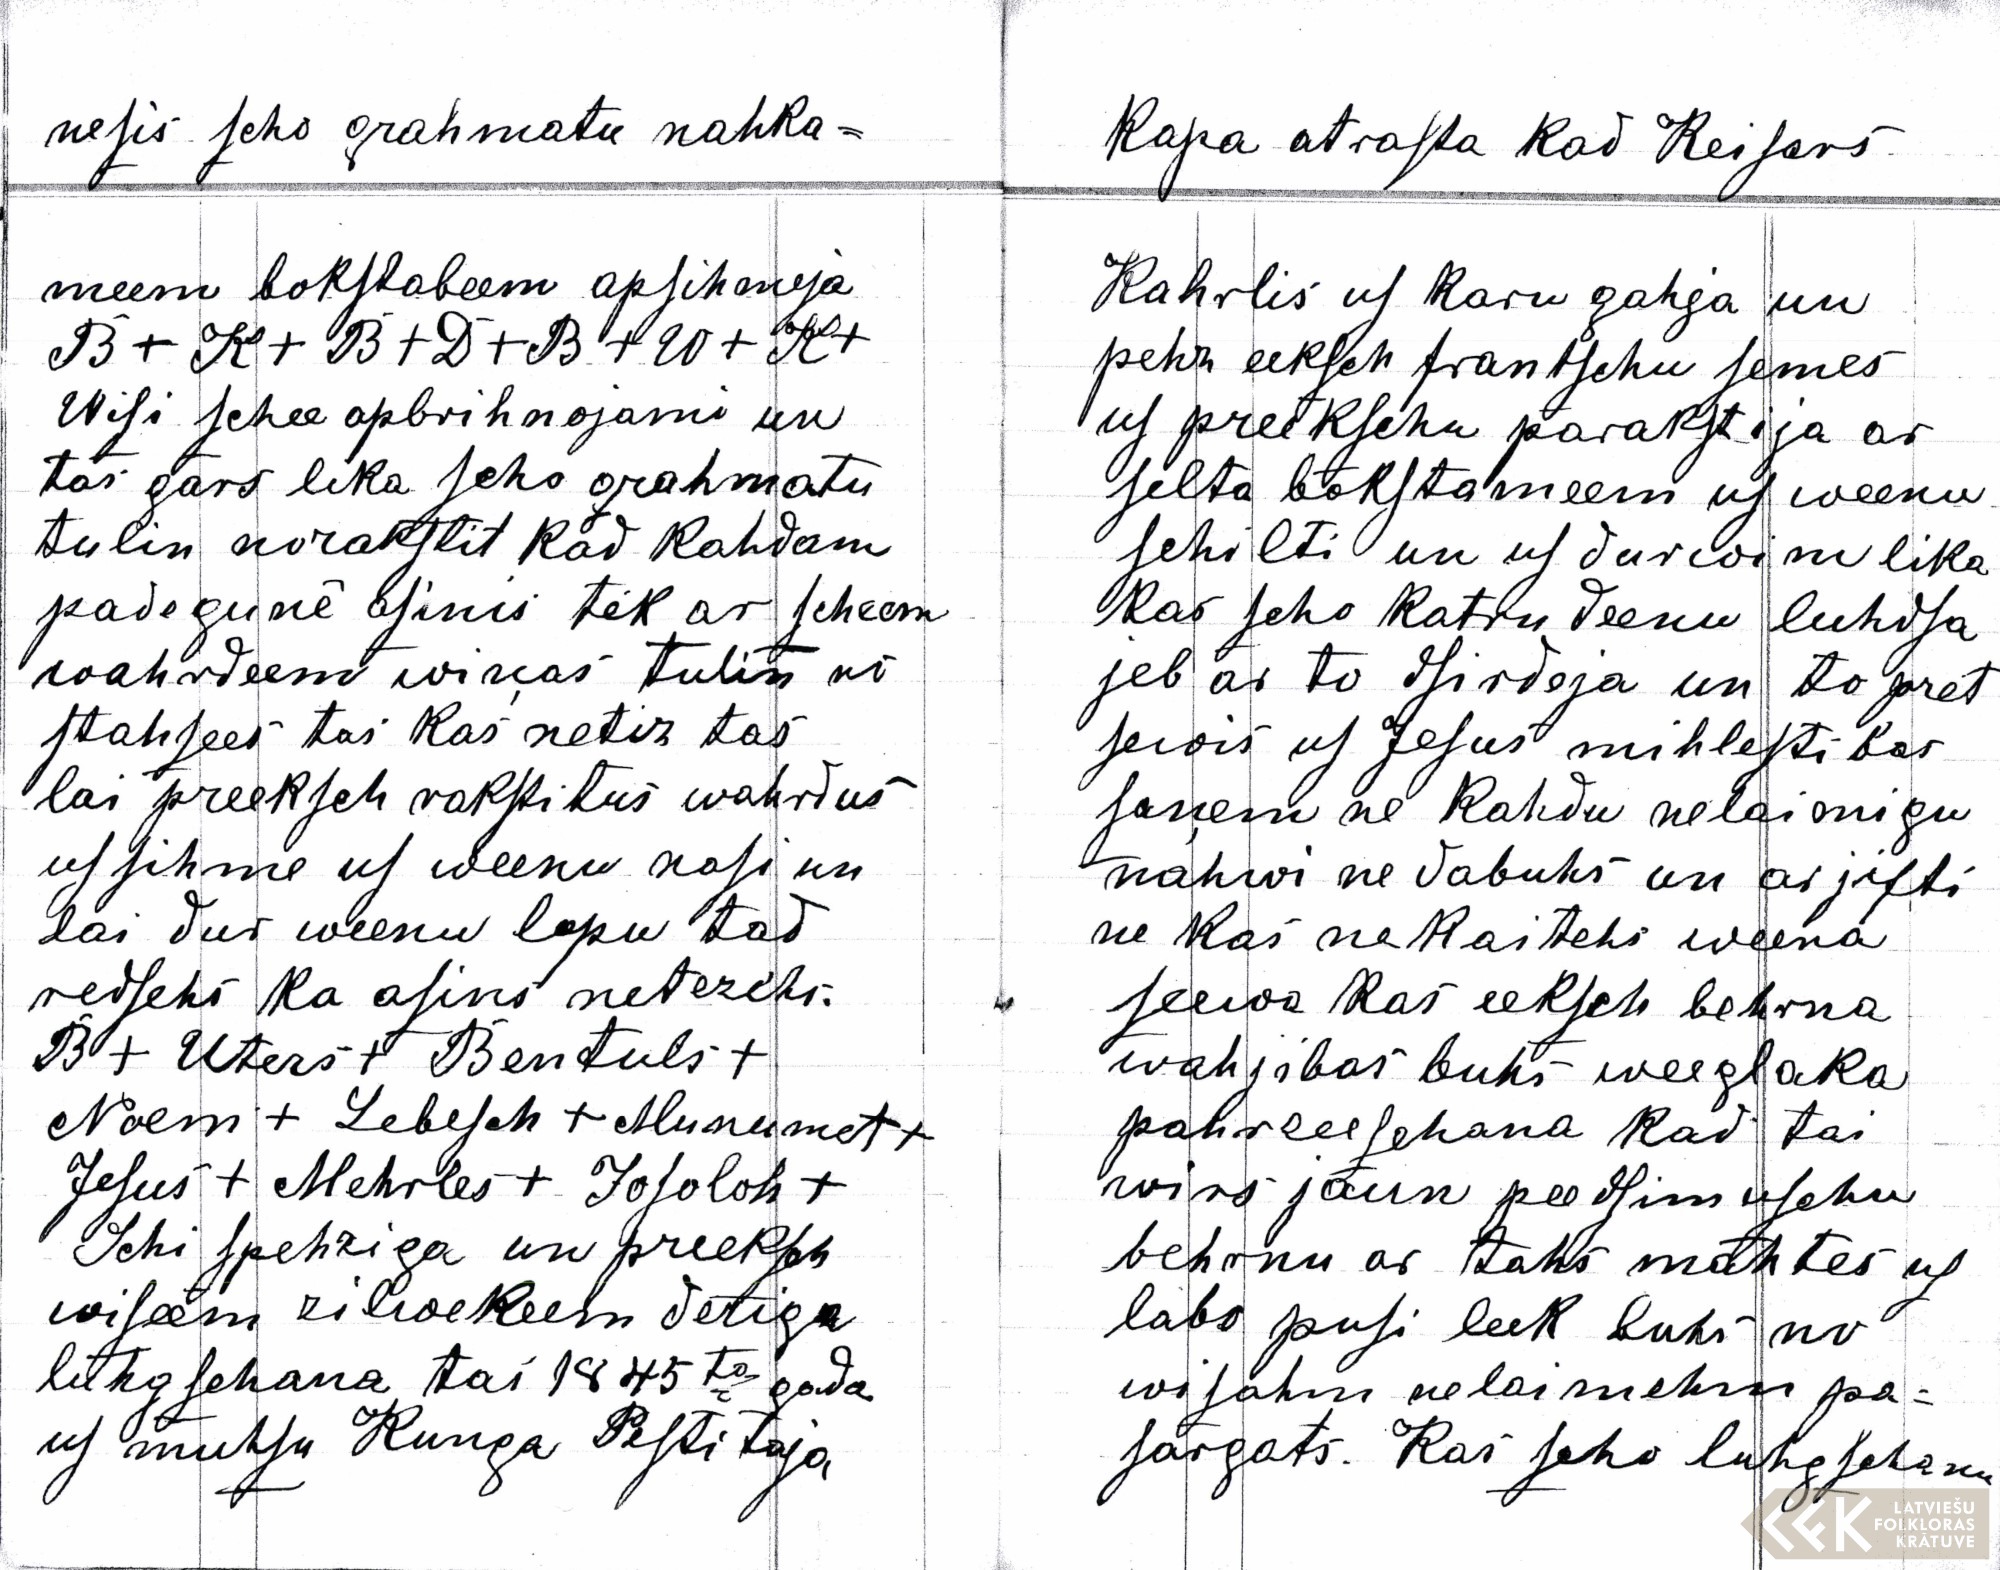 nesis scho grahmatu nahka=
meem bokstabeem apsihmeja
B + K + B + D + B + W + K +
Wisi schee apbrihnojami un
tas gars lika scho grahmatu
tulin norakstit kad kahdam
padegunē asinis tek ar scheem
wahrdeem wiņas tulin no
stahsees tas kas netiz tas
lai preeksch rakstitus wahrdus
ussihme us weenu nasi un
lai dur weenu lopu tad
redsehs ka asins netezehs.
B + Uters + Bentuls +
Noem + Lebesch + Munumet +
Jesus + Mehrles + Josoloh +
Schi spehziga un preeksch
wiseem zilwekeem deriga
luhgschana tai 1845 ta gada
us muhsu Kunga Pestitaja
Kapa atrasta kad Keisars
Kahrlis us karu gahja un
pehz eeksch frantschu semes
us preekschu parakstija ar
selta bokstameem us weenu
schilti un us durwim lika
kas scho katru deenu luhdsa
jeb ar to dsirdeja un to pret
sewis us Jesus mihlestibas
saņem ne kahdu nelaimigu
nahwi ne dabuhs un ar jifti
ne kas ne kaitehs weena
seewa kas eeksch behrna
wahjibas buhs weeglaka
pahrzeeschana kad tai
wirs jaun peedsimuschu
behrnu ar tahs mahtes us
labo pusi leek buhs no
wisahm nelaimehm pa=
sargats. Kas scho luhgschanu
LATVIEŠU
FOLKLORAS
KRĀTUVE